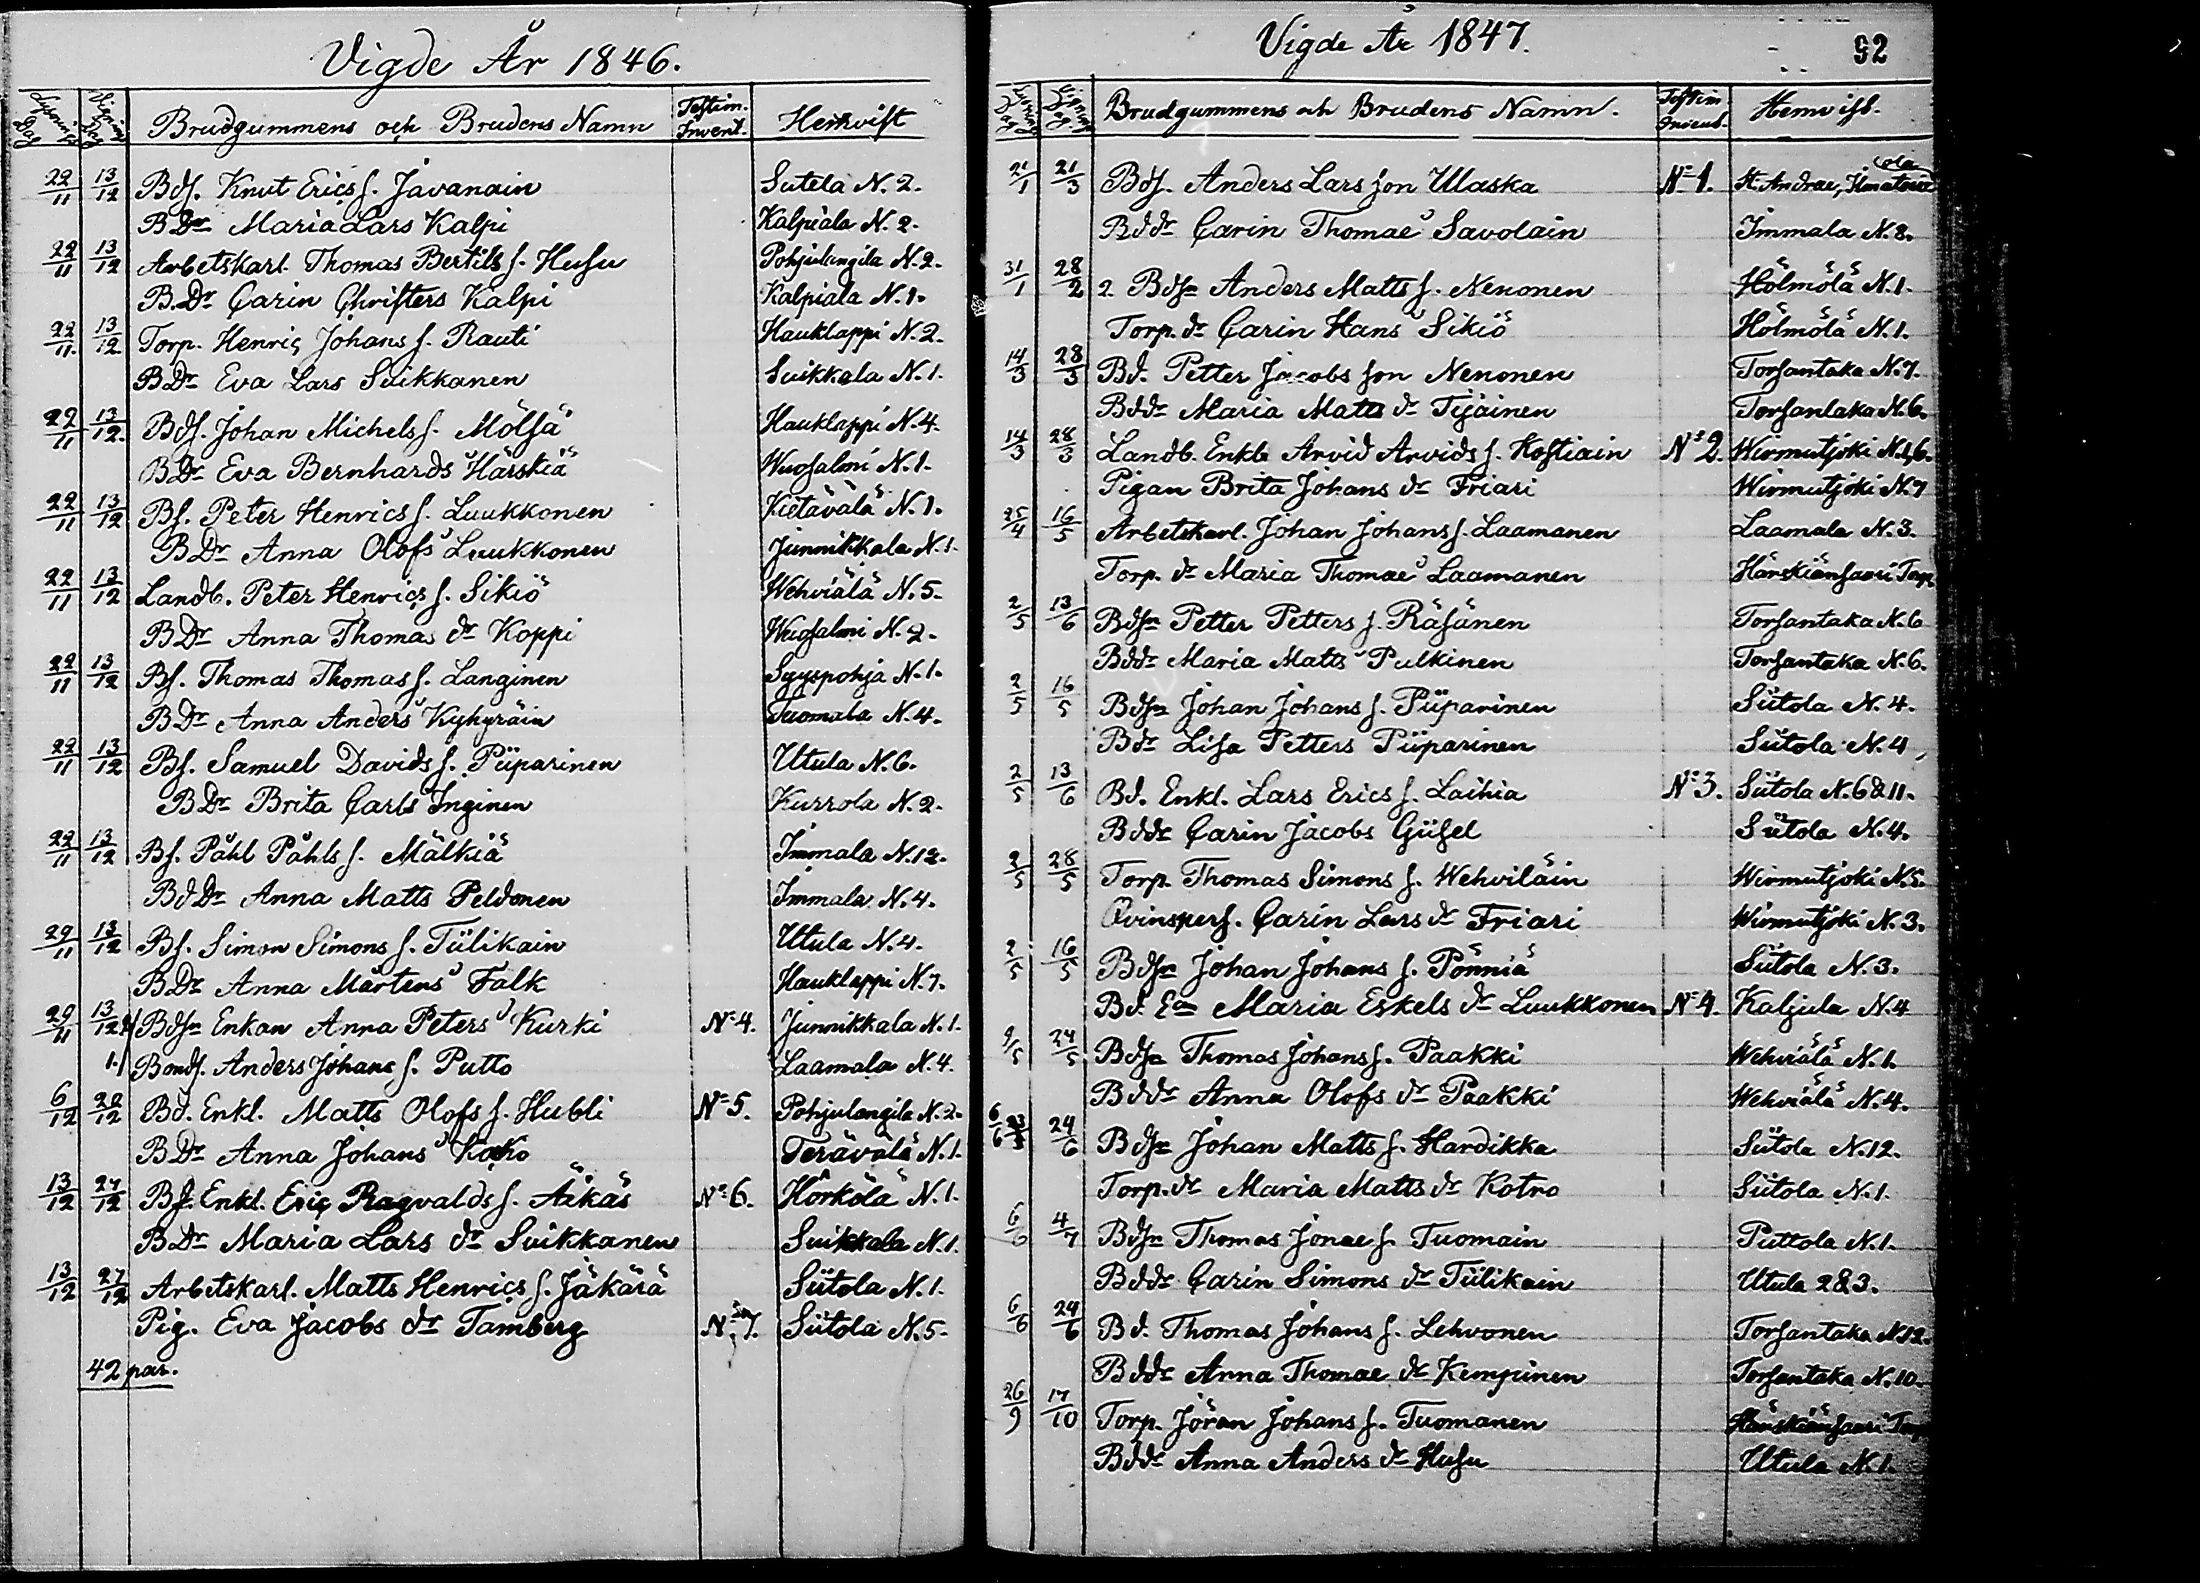 Vigde År 1846.
Lysnings Dag Vigning Dag Brudgummens och Brudens Namn Testim. Invent. Hemvist
22/11 13/12 Bdf. Knut Erics f. Javanain Sutela N. 2.
B Dr Maria Lars Kalpi Kalpiala N. 2.
22/11 13/12 Arbetskarl. Thomas Bertils f. Husu Pohjulangila N. 2.
B. Dr Carin Christers Kalpi Kalpiala N. 1.
22/11. 13/12. Torp. Henric Johans f. Rauti Hauklappi N. 2.
B Dr Eva Lars Suikkanen Suikkala N. 1.
22/11 13/12. Bdf. Johan Michels f. Mölsä Hauklappi N. 4.
B Dr Eva Bernhards Härskiä Wuosalmi N. 1.
22/11 13/12 Bf. Peter Henrics f. Luukkonen Kietävälä N. 1.
B Dr Anna Olofs Luukkonen Junnikkala N. 1.
22/11 13/12 Landb. Peter Henrics f. Sikiö Wehviälä N. 5.
B Dr Anna Thomas dr Koppi Wuosalmi N. 2.
22/11 13/12 Bf. Thomas Thomas f. Langinen Syyspohja N. 1.
B Dr Anna Anders Kyhyräin Tuomala N. 4.
22/11 13/12 Bf. Samuel Davids f. Piiparinen Utula N. 6.
B Dr Brita Carls Inginen Kurrola N. 2.
22/11 13/12 Bf. Påhl Påhls f. Mälkiä Immala N. 12.
Bd Dr Anna Matts Peldonen Immala N. 4.
29/11 13/12 Bf. Simon Simons f. Tiilikain Utula N. 4.
B Dr Anna Mårtens Falk Hauklappi N. 7.
29/11 13/12 2. Bdfn Enkan Anna Peters Kurki No 4. Junnikkala N. 1.
1. Bondf. Anders Johans f. Putto Laamala N. 4.
6/12 28/12 Bd. Enkl. Matts Olofs f. Hubli No 5. Pohjulangila N. 2.
B Dr Anna Johans Koko Terävälä N. 1.
13/12 27/12 Bf. Enkl. Eric Ragvalds f. Äikäs No 6. Hörkölä N. 1.
B Dr Maria Lars dr Suikkanen Suikkala N. 1.
13/12 27/12 Arbetskarl. Matts Henrics f. Jäkärä Siitola N. 1.
Pig. Eva Jacobs dr Tamberg No 7. Siitola N. 5.
42 par.
Vigde År 1847. 92
Lysnings Dag Vigning Dag Brudgummens och Brudens Namn. Testim Invent. Hemvist.
21/1 21/3 Bdf. Anders Lars son Ulaska No 1. St. Andrae,
Bddr Carin Thomae Savolain Immala N. 8.
31/1 28/2 2. Bdfn Anders Matts f. Nenonen Hölmölä N. 1.
Torp. dr Carin Hans Sikiö Hölmölä N. 1.
14/3 28/3 Bd. Petter Jacobs son Nenonen Torsantaka N. 7.
Bddr Maria Matts dr Tijäinen Torsantaka N. 6.
14/3 28/3 Landb. Enkl. Arvid Arvids f. Kostiain No 2. Wirmutjoki N. 1, 6.
Pigan Brita Johans dr Friari Wirmutjoki N. 7
25/4 16/5 Arbetskarl. Johan Johans f. Laamanen Laamala N. 3.
Torp. dr Maria Thomae Laamanen Härskiänsaari Torp.
2/5 13/6 Bdfn Petter Petters f. Räsänen Torsantaka N. 6
Bddr Maria Matts Pulkinen Torsantaka N. 6.
2/5 16/5 Bdfn Johan Johans f. Piiparinen Siitola N. 4.
Bdr Lisa Petters Piiparinen Siitola N. 4
2/5 13/6 Bd. Enkl. Lars Erics f. Laihia No 3. Siitola N. 6 & 11.
Bddr Carin Jacobs Giisel Siitola N. 4.
2/5 28/5 Torp. Thomas Simons f. Wehviläin Wirmutjoki N. 5.
Qvinspers. Carin Lars dr Friari Wirmutjoki N. 3.
2/5 16/5 Bdfn Johan Johans f. Pönniä Siitola N. 3.
Bd. Ea Maria Eskels dr Luukkonen No 4. Kaljula N. 4
9/5 24/5 Bdfn Thomas Johans f. Paakki Wehviälä N. 1.
Bddr Anna Olofs dr Paakki Wehviälä N. 4.
6/6 24/6 Bdfn Johan Matts f. Hardikka Siitola N. 12.
Torp. dr Maria Matts dr Kotro Siitola N. 1.
6/6 4/7 Bdfn Thomas Jonae f. Tuomain Puttola N. 1.
Bddr Carin Simons dr Tiilikain Utula 2 & 3.
6/6 24/6 Bd. Thomas Johans f. Lehvonen Torsantaka N. 12.
Bddr Anna Thomae dr Kempinen Torsantaka N. 10.
26/9 17/10 Torp. Jöran Johans f. Tuomanen Härskiänsaari Torp
Bddr Anna Anders dr Husu Utula N. 1.